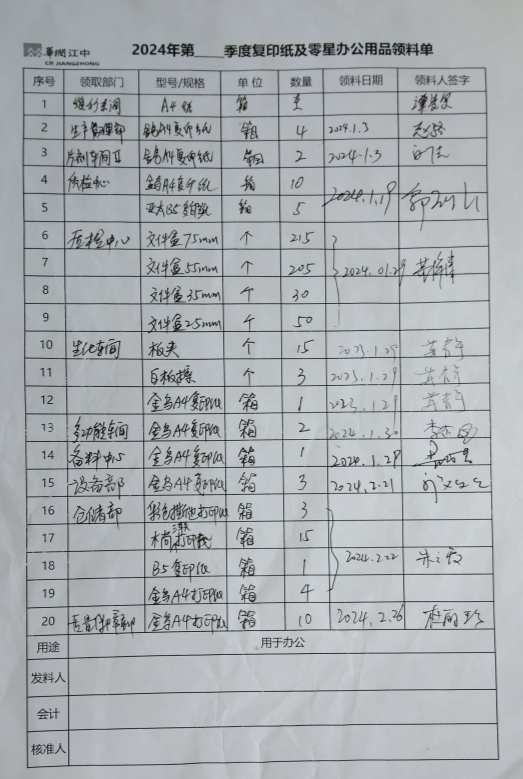 華潤江中
CR JIANGZHONG
2024年第____季度复印纸及零星办公用品领料单
序号 领取部门 型号/规格 单位 数量 领料日期 领料人签字
1 A4纸 箱
2 生产管理部 金鸟A4复印纸 箱 4 2024.1.3
3 片剂车间II 金鸟A4复印纸 箱 2 2024.1.3
4 质检中心 金鸟A4复印纸 箱 10 2024.1.19
5 亚太B5复印纸 箱 5
6 质检中心 文件盒75mm 个 215
7 文件盒55mm 个 205 2024.01.29
8 文件盒35mm 个 30
9 文件盒25mm 个 50
10 生化车间 板夹 个 15 2023.1.29
11 白板擦 个 3 2023.1.29
12 金鸟A4复印纸 箱 1 2023.1.29
13 多功能车间 金鸟A4复印纸 箱 2 2024.1.30
14 备料中心 金鸟A4复印纸 箱 1 2024.1.29
15 设备部 金鸟A4复印纸 箱 3 2024.2.21
16 仓储部 打印纸 箱 3
17 箱 15
18 B5复印纸 箱 1 2024.2.22
19 金鸟A4打印纸 箱 4
20 金鸟A4打印纸 箱 10 2024.2.26
用途 用于办公
发料人
会计
核准人